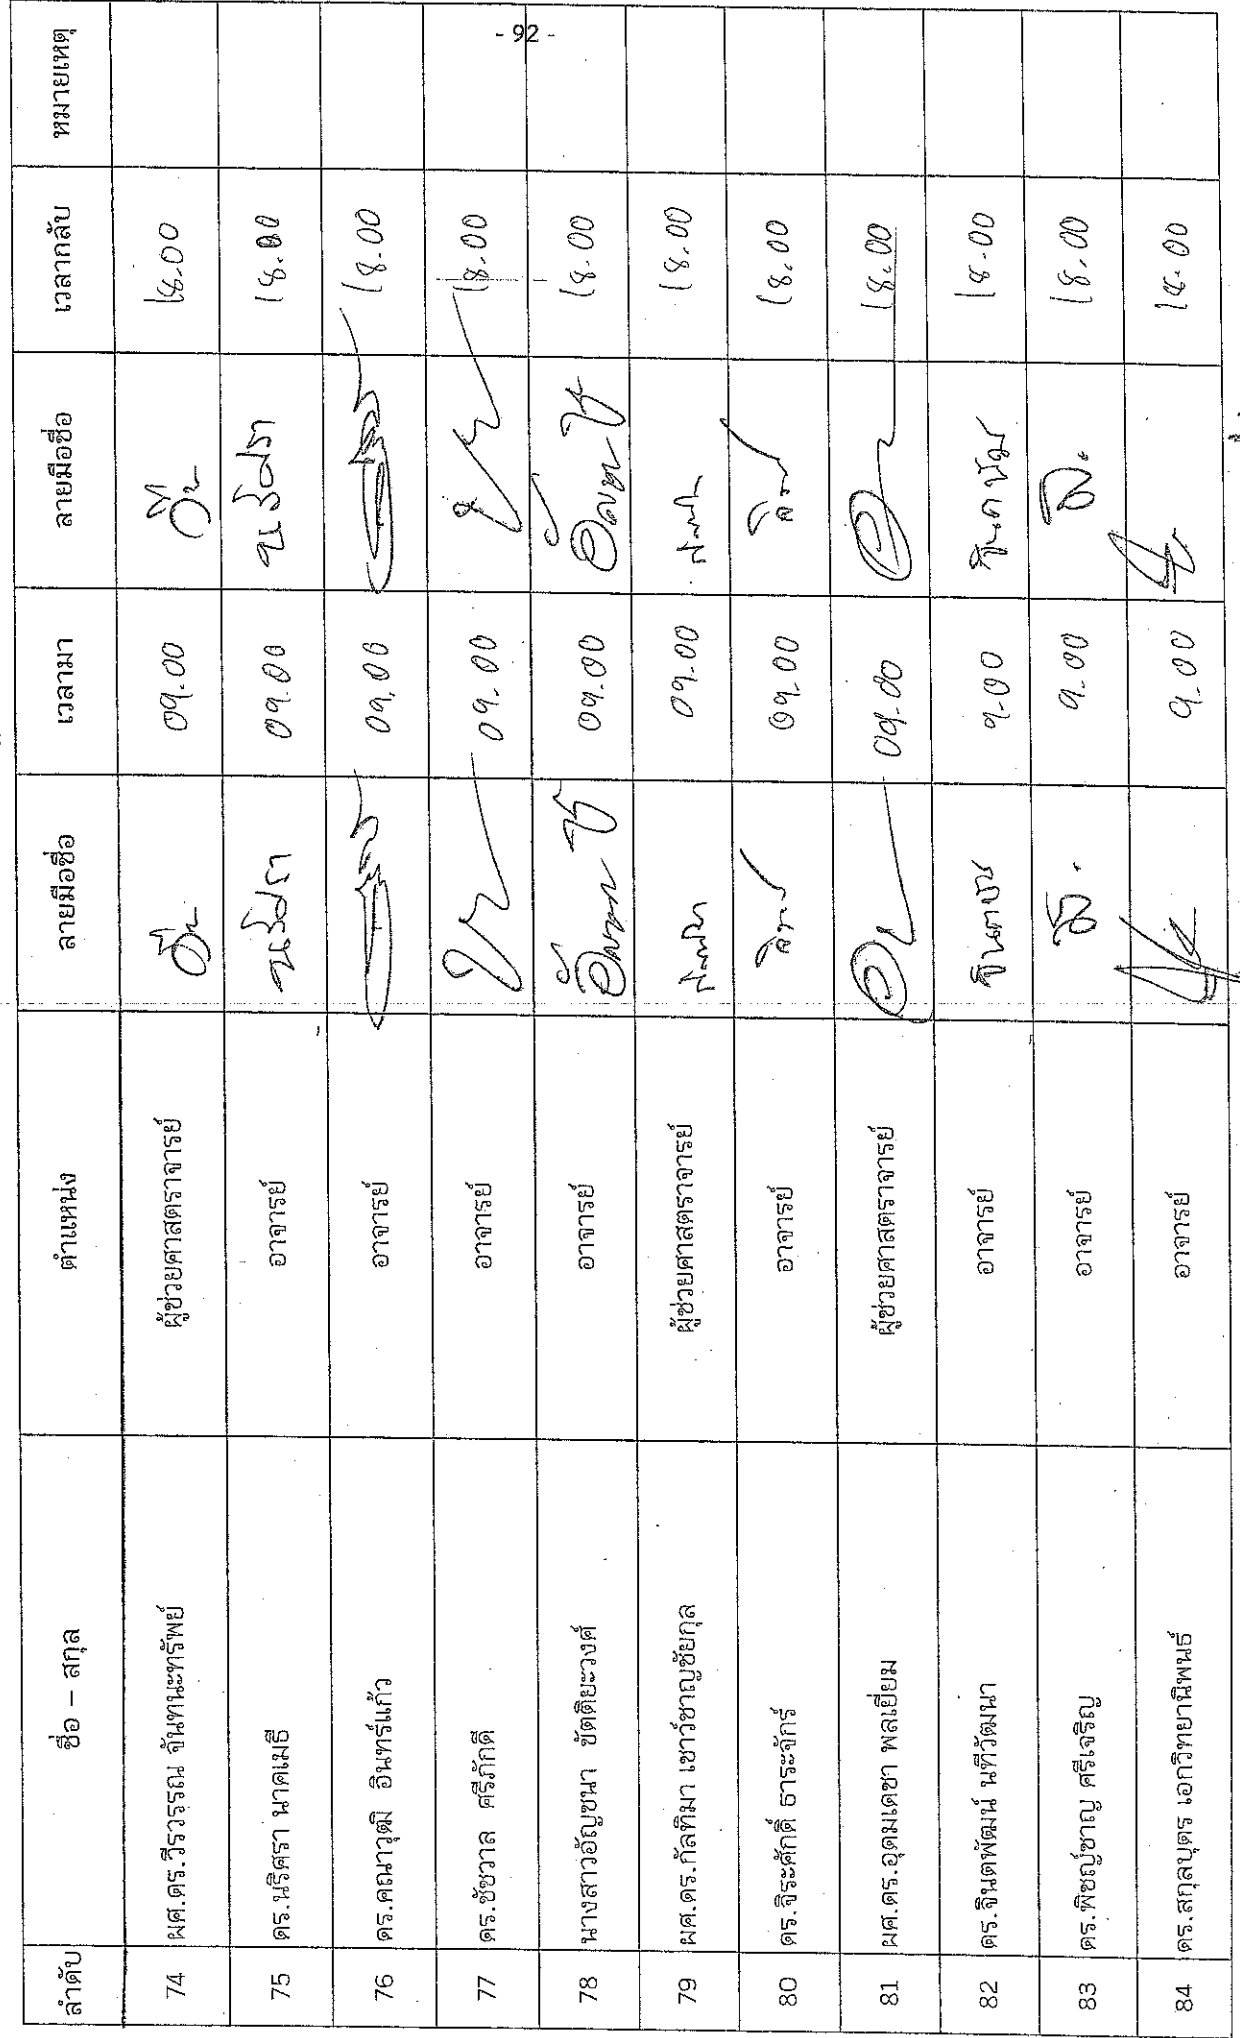 - 92 -
ลำดับ ชื่อ – สกุล ตำแหน่ง ลายมือชื่อ เวลามา ลายมือชื่อ เวลากลับ หมายเหตุ
74 ผศ.ดร.วีรวรรณ จันทนะทรัพย์ ผู้ช่วยศาสตราจารย์ 09.00 18.00
75 ดร.นริศรา นาคเมธี อาจารย์ นริศรา 09.00 นริศรา 18.00
76 ดร.คณาวุฒิ อินทร์แก้ว อาจารย์ 09.00 18.00
77 ดร.ชัชวาล ศรีภักดี อาจารย์ 09.00 18.00
78 นางสาวอัญชนา ขัตติยะวงศ์ อาจารย์ 09.00 18.00
79 ผศ.ดร.กัลทิมา เชาว์ชาญชัยกุล ผู้ช่วยศาสตราจารย์ 09.00 18.00
80 ดร.จิระศักดิ์ ธาระจักร์ อาจารย์ 09.00 18.00
81 ผศ.ดร.อุดมเดชา พลเยี่ยม ผู้ช่วยศาสตราจารย์ 09.00 18.00
82 ดร.จินตพัฒน์ นทีวัฒนา อาจารย์ 9.00 18.00
83 ดร.พิชญ์ชาญ ศรีเจริญ อาจารย์ 9.00 18.00
84 ดร.สกุลบุตร เอกวิทยานิพนธ์ อาจารย์ 9.00 18.00